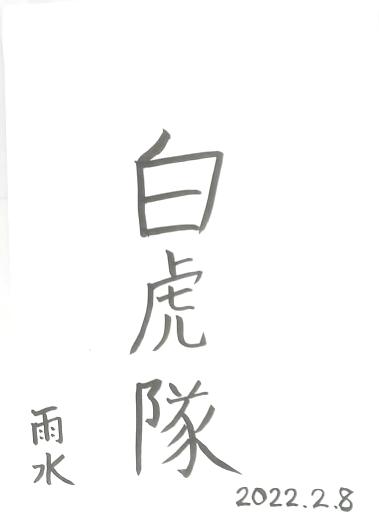 白虎隊
雨水
2022.2.8